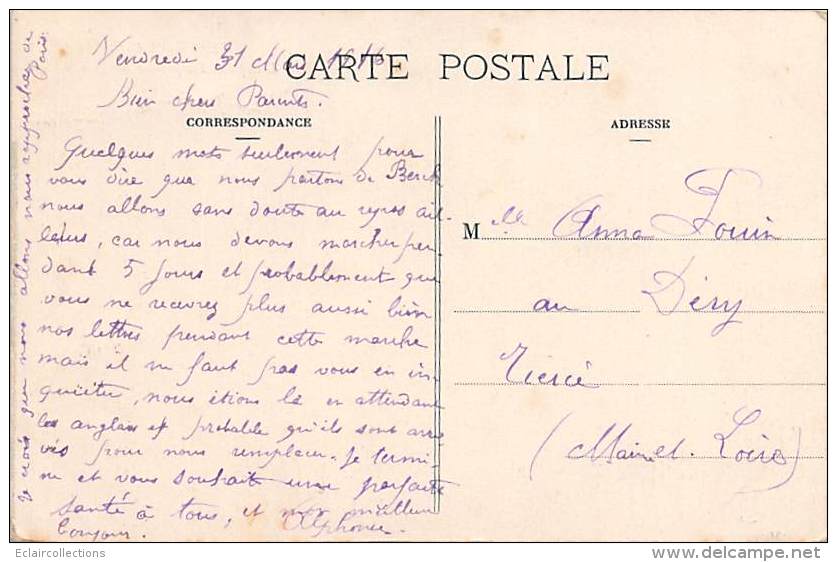 Vendredi 31 Mars 1916
CARTE POSTALE
Bien chers Parents.
CORRESPONDANCE
Quelques mots seulement pour
vous dire que nous partons de Berck
nous allons sans doute au repos ail-
leurs, car nous devons marcher pen
dant 5 jours et probablement que
vous ne recevrez plus aussi bien
nos lettres pendant cette marche
mais il ne faut pas vous en in
quiéter, nous étions là en attendant
les anglais et probable qu'ils sont arri
vés pour nous remplacer. Je termi
ne et vous souhaite une parfaite
santé à tous, et mon meilleur
bonjour. Alphonse
je crois que nous allons nous rapprocher de
Paris.
ADRESSE
Melle Anna
au Déry
Tiercé
(Maine et Loire)
Eclaircollections
www.delcampe.net